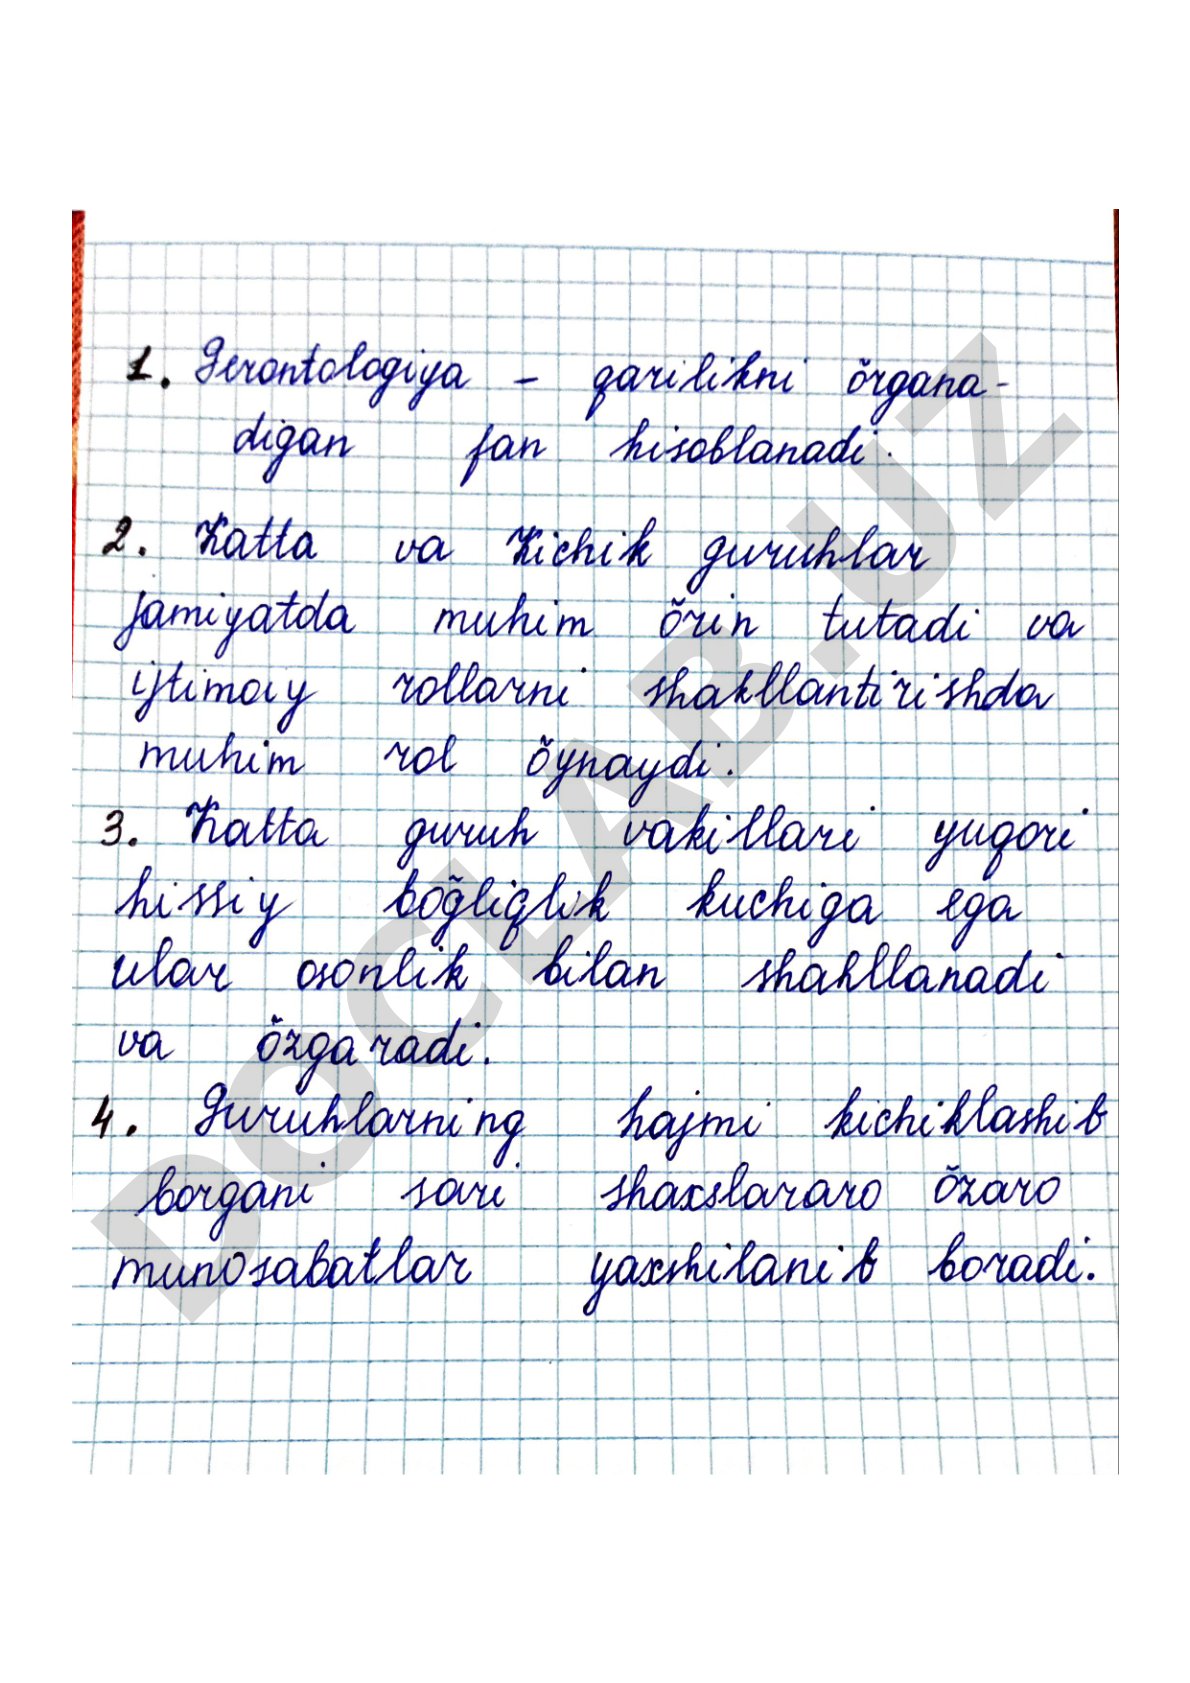 1. Gerontologiya - qarilikni õrgana-
digan fan hisoblanadi.
2. Katta va Kichik guruhlar
jamiyatda muhim õrin tutadi va
ijtimoiy rollarni shakllantirishda
muhim rol õynaydi.
3. Katta guruh vakillari yuqori
hissiy bog̃liqlik kuchiga ega
ular osonlik bilan shahllanadi
va õzgaradi.
4. Guruhlarning hajmi kichiklashib
borgani sari shaxslararo õzaro
munosabatlar yaxshilanib boradi.
DOCLAB.UZ